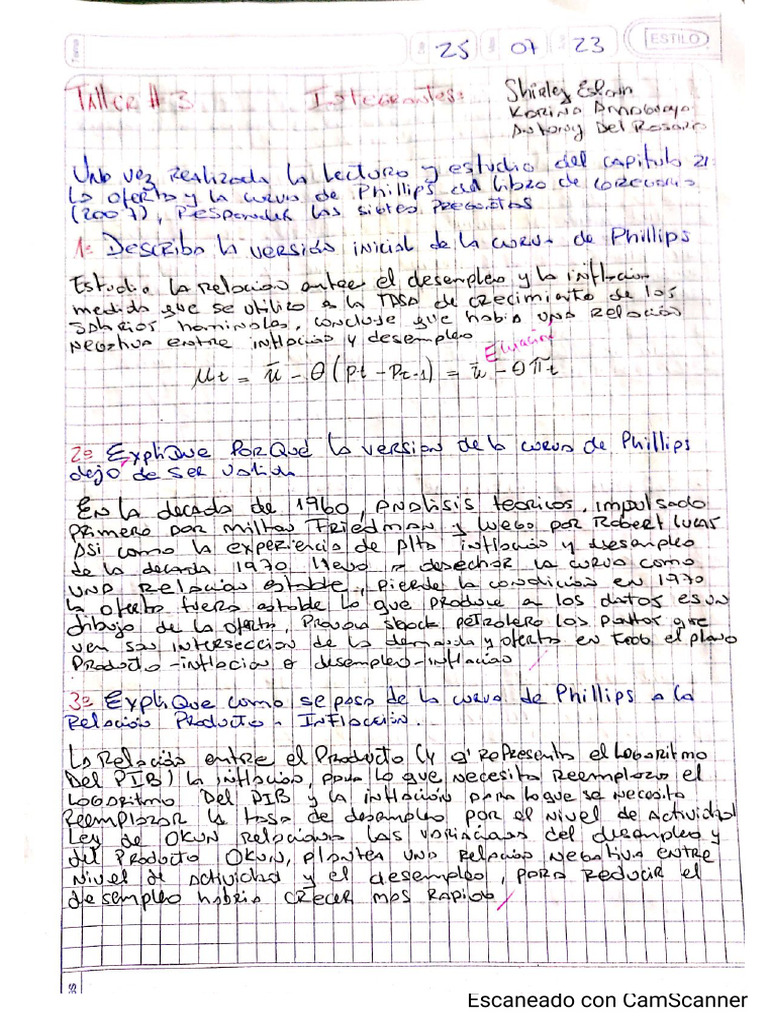 25 07 23 ESTILO
Taller # 3 Integrantes: Shirley
Karina
Antony Del Rosario
Una vez Realizada la Lectura y estudio del capitulo 21
la oferta y la curva de Phillips del libro de Gregorio
(2007), Responder las sietes Preguntas
1º Describa la versión inicial de la curva de Phillips
Estudia la Relación entre el desempleo y la inflación
medida que se utilizo a la TASA de crecimiento de los
Salarios nominales, concluye que habia una Relación
Negativa entre inflación y desempleo
Ecuación
μt = ū - θ (Pt - Pt-1) = ū - θπt
2º Explique Por Qué la version de la curva de Phillips
dejó de ser valida
En la decada de 1960, Análisis teoricos, impulsado
Primero por Milton Friedman y luego por Robert Lucas
Asi como la experiencia de Alta inflación y desempleo
de la decada 1970 llevo a desechar la curva como
una Relación estable, pierde la condición en 1970
la oferta fuera estable lo que produce a los datos es un
dibujo de la oferta, shock petrolero los puntos que
ven son intersección de la demanda y oferta en todo el plano
Producto-inflación o desempleo-inflación
3º Explique como se pasa de la curva de Phillips a la
Relación Producto - Inflación.
La Relación entre el Producto (y q' Representa el Logaritmo
Del PIB) la inflación, para lo que necesita Reemplaza el
Logaritmo Del PIB y la inflación para lo que se necesita
Reemplazar la tasa de desempleo por el nivel de actividad
Ley de Okun Relaciona las variaciones del desempleo y
del Producto Okun, plantea una Relación negativa entre
Nivel de actividad y el desempleo, para Reducir el
desempleo habria crecer mas Rapido
Escaneado con CamScanner